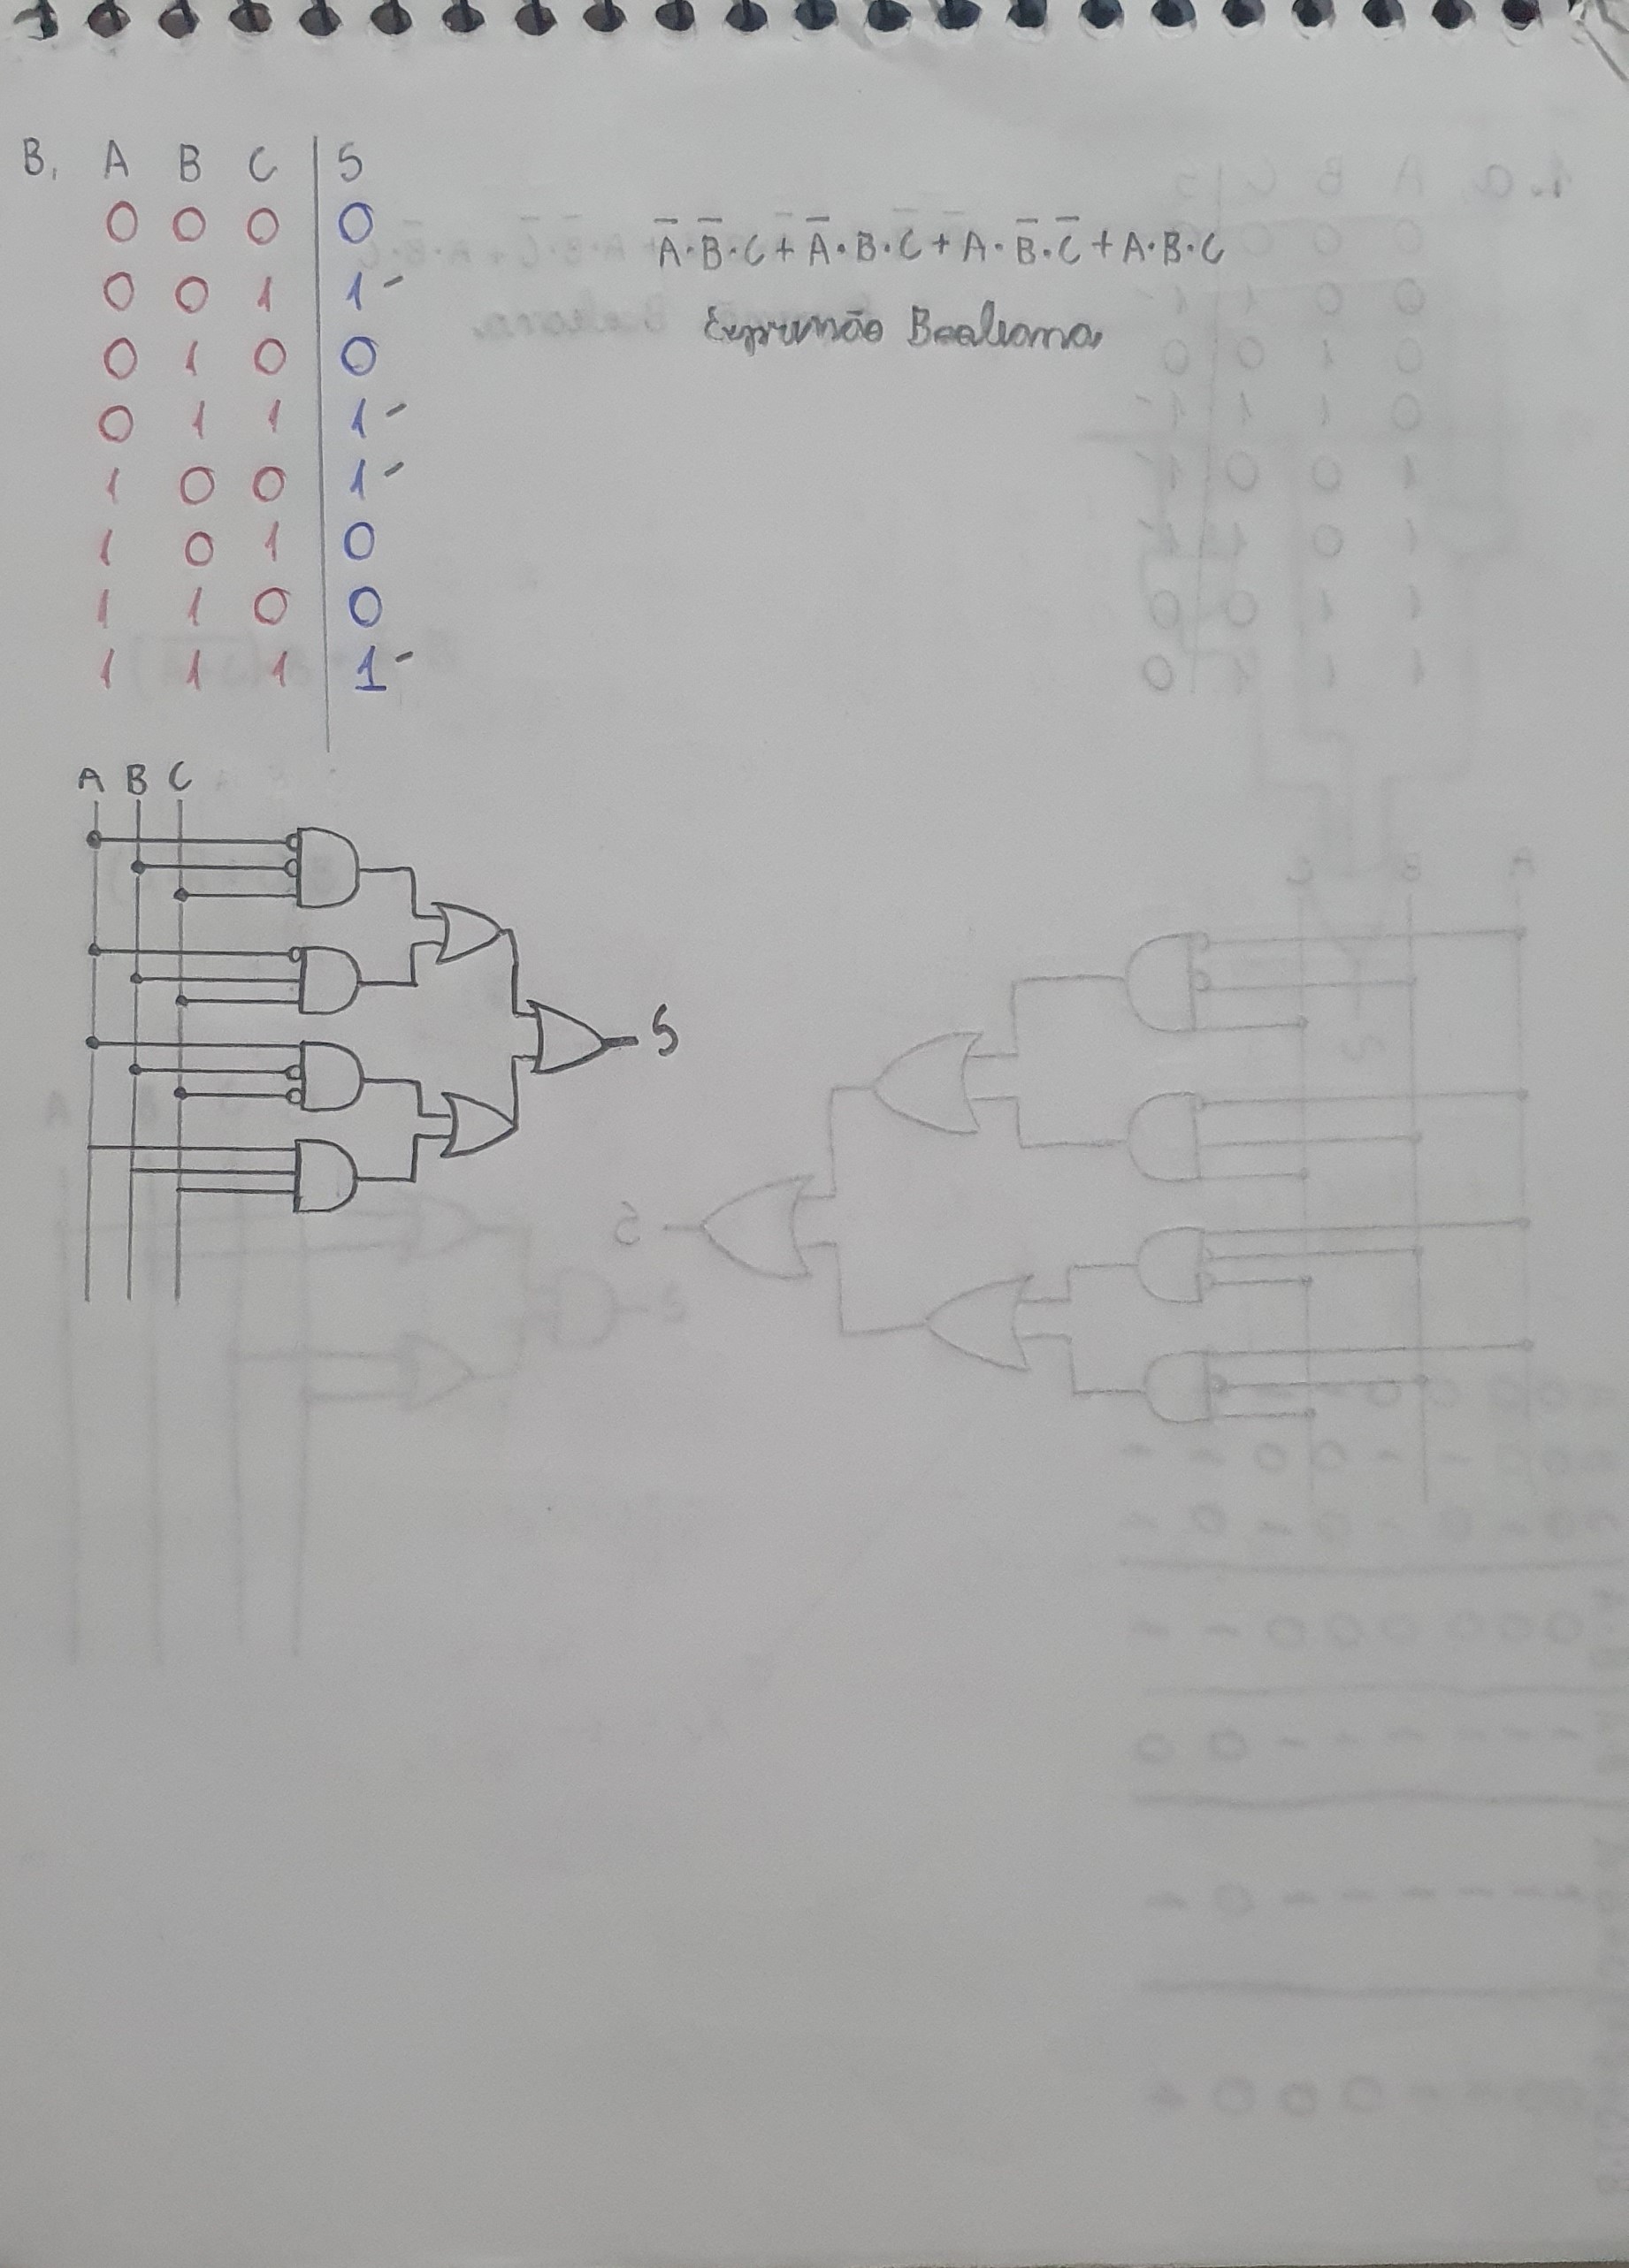 B. A B C | S
0 0 0 | 0
0 0 1 | 1 -
0 1 0 | 0
0 1 1 | 1 -
1 0 0 | 1 -
1 0 1 | 0
1 1 0 | 0
1 1 1 | 1 -
A̅·B̅·C + A̅·B·C + A·B̅·C̅ + A·B·C
Expressão Booleana
A B C
S